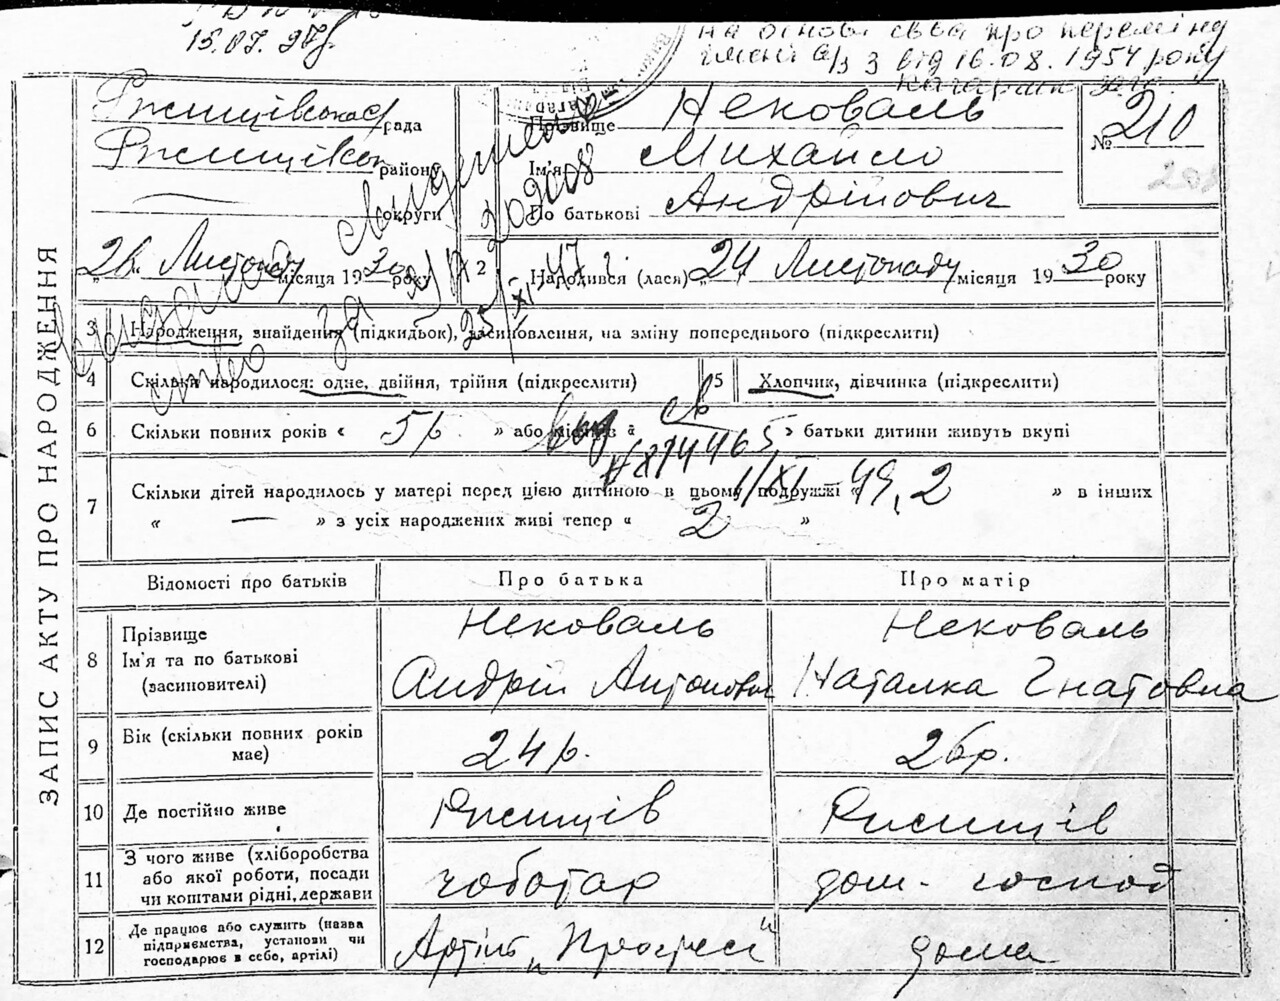 15.07.97р
на основі св-ва про переміну
імені а/з 3 від 16.08.1957 року
Ржищівська рада
Ржищівськ району
округи
Прізвище Нековаль
Ім'я Михайло
По батькові Андрійович
№ 210
„26. Листопаду місяця 1930 року
2 Народився (лася) „24 Листопаду місяця 1930 року
ЗАПИС АКТУ ПРО НАРОДЖЕННЯ
3 Народження, знайдення (підкидьок), засиновлення, на зміну попереднього (підкреслити)
4 Скільки народилося: одне, двійня, трійня (підкреслити)
5 Хлопчик, дівчинка (підкреслити)
6 Скільки повних років « 5 р. » або місяців « » батьки дитини живуть вкупі
7 Скільки дітей народилось у матері перед цією дитиною в цьому подружжі « 2 » в інших
« — » з усіх народжених живі тепер « 2 »
Відомості про батьків Про батька Про матір
8 Прізвище Ім'я та по батькові (засиновителі) Нековаль Андрій Антонович Нековаль Наталка Гнатовна
9 Вік (скільки повних років має) 24 р. 26 р.
10 Де постійно живе Ржищів Ржищів
11 З чого живе (хліборобства або якої роботи, посади чи коштами рідні, держави чоботар дом. господ
12 Де працює або служить (назва підприємства, установи чи господарює в себе, артілі) Артіль „Прогрес" дома